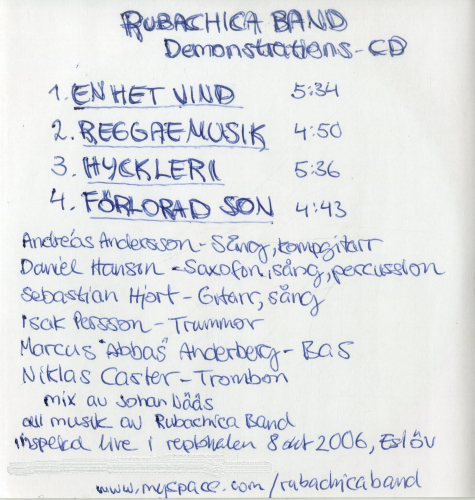 RUBACHICA BAND
Demonstrations-CD
1. EN HET VIND 5:34
2. REGGAEMUSIK 4:50
3. HYCKLERI 5:36
4. FÖRLORAD SON 4:43
Andreás Andersson - Sång, kompgitarr
Daniel Hanson - Saxofon, sång, percussion
Sebastian Hjort - Gitarr, sång
Isak Persson - Trummor
Marcus "Abbas" Anderberg - Bas
Niklas Caster - Trombon
mix av Johan Dääs
all musik av Rubachica Band
inspelad live i replokalen 8 okt 2006, Eslöv
www.myspace.com/rubachicaband